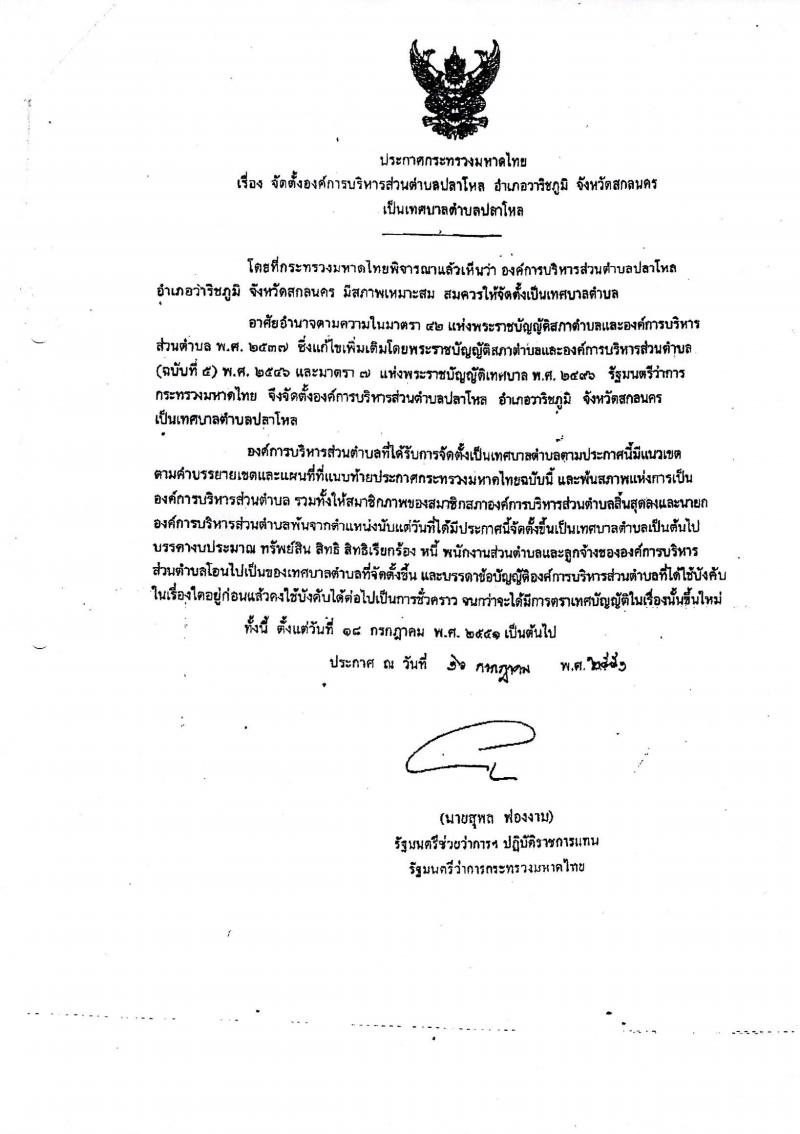 ประกาศกระทรวงมหาดไทย
เรื่อง จัดตั้งองค์การบริหารส่วนตำบลปลาโหล อำเภอวาริชภูมิ จังหวัดสกลนคร
เป็นเทศบาลตำบลปลาโหล
โดยที่กระทรวงมหาดไทยพิจารณาแล้วเห็นว่า องค์การบริหารส่วนตำบลปลาโหล
อำเภอวาริชภูมิ จังหวัดสกลนคร มีสภาพเหมาะสม สมควรให้จัดตั้งเป็นเทศบาลตำบล
อาศัยอำนาจตามความในมาตรา ๔๒ แห่งพระราชบัญญัติสภาตำบลและองค์การบริหาร
ส่วนตำบล พ.ศ. ๒๕๓๗ ซึ่งแก้ไขเพิ่มเติมโดยพระราชบัญญัติสภาตำบลและองค์การบริหารส่วนตำบล
(ฉบับที่ ๕) พ.ศ. ๒๕๔๖ และมาตรา ๗ แห่งพระราชบัญญัติเทศบาล พ.ศ. ๒๔๙๖ รัฐมนตรีว่าการ
กระทรวงมหาดไทย จึงจัดตั้งองค์การบริหารส่วนตำบลปลาโหล อำเภอวาริชภูมิ จังหวัดสกลนคร
เป็นเทศบาลตำบลปลาโหล
องค์การบริหารส่วนตำบลที่ได้รับการจัดตั้งเป็นเทศบาลตำบลตามประกาศนี้มีแนวเขต
ตามคำบรรยายเขตและแผนที่ที่แนบท้ายประกาศกระทรวงมหาดไทยฉบับนี้ และพ้นสภาพแห่งการเป็น
องค์การบริหารส่วนตำบล รวมทั้งให้สมาชิกภาพของสมาชิกสภาองค์การบริหารส่วนตำบลสิ้นสุดลงและนายก
องค์การบริหารส่วนตำบลพ้นจากตำแหน่งนับแต่วันที่ได้มีประกาศนี้จัดตั้งขึ้นเป็นเทศบาลตำบลเป็นต้นไป
บรรดางบประมาณ ทรัพย์สิน สิทธิ สิทธิเรียกร้อง หนี้ พนักงานส่วนตำบลและลูกจ้างขององค์การบริหาร
ส่วนตำบลโอนไปเป็นของเทศบาลตำบลที่จัดตั้งขึ้น และบรรดาข้อบัญญัติองค์การบริหารส่วนตำบลที่ได้ใช้บังคับ
ในเรื่องใดอยู่ก่อนแล้วคงใช้บังคับได้ต่อไปเป็นการชั่วคราว จนกว่าจะได้มีการตราเทศบัญญัติในเรื่องนั้นขึ้นใหม่
ทั้งนี้ ตั้งแต่วันที่ ๑๘ กรกฎาคม พ.ศ. ๒๕๕๑ เป็นต้นไป
ประกาศ ณ วันที่ กรกฎาคม พ.ศ. ๒๕๕๑
(นายสุพล ฟองงาม)
รัฐมนตรีช่วยว่าการฯ ปฏิบัติราชการแทน
รัฐมนตรีว่าการกระทรวงมหาดไทย